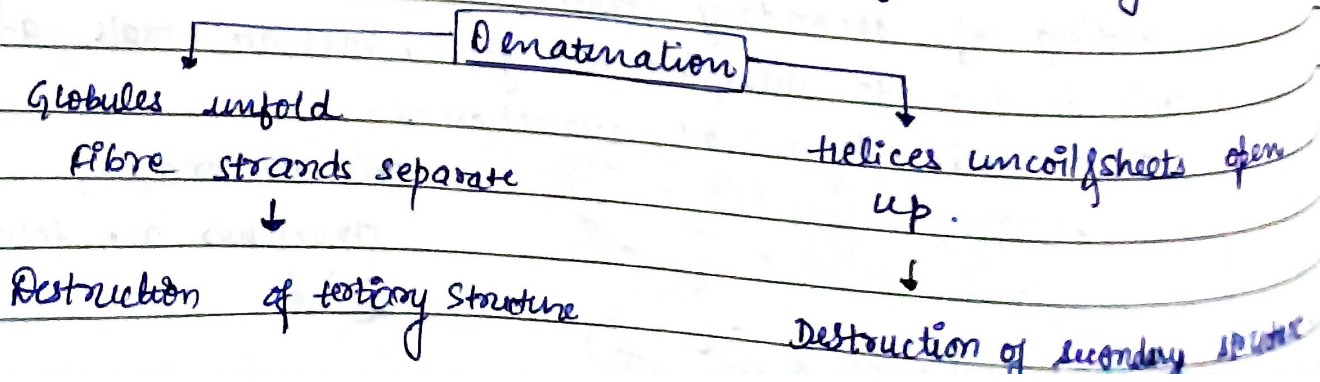 Denaturation
Globules unfold
Fibre strands separate
↓
Destruction of tertiary structure
Helices uncoil & sheets open
up.
↓
Destruction of secondary